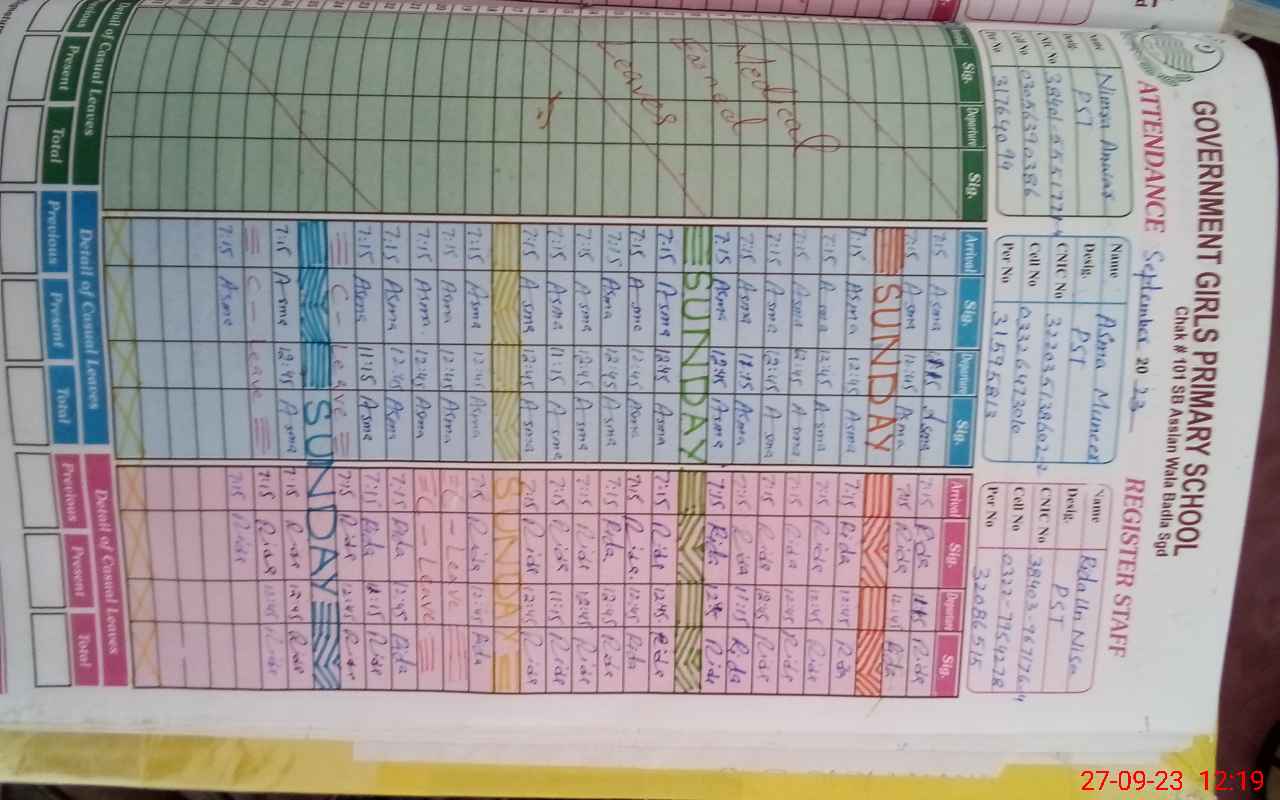 GOVERNMENT GIRLS PRIMARY SCHOOL
Chak # 101 SB Assian Wala Badla Sgd
ATTENDANCE September 2023 REGISTER STAFF
Name
Desig. PST
CNIC No
Cell No 03056390386
Per No 31764099
Name Asma Muneer
Desig. PST
CNIC No
Cell No
Per No 31595813
Name Rida Un Nisa
Desig. PST
CNIC No
Cell No 0322-7154278
Per No 32086515
Sig. Departure Sig.
Arrival Sig. Departure Sig.
Arrival Sig. Departure Sig.
Medical
Leaves
7:15 Asma Asma 7:15 Rida Rida
7:15 Asma 12:45 Asma 7:15 Rida 12:45 Rida
SUNDAY
7:15 Asma 12:45 Asma 7:15 Rida 12:45 Rida
7:15 Asma 12:45 Asma 7:15 Rida 12:45 Rida
7:15 Asma 12:45 Asma 7:15 Rida 12:45 Rida
7:15 Asma 12:45 Asma 7:15 Rida 12:45 Rida
7:15 Asma 11:15 Asma 7:15 Rida 11:15 Rida
7:15 Asma 12:45 Asma 7:15 Rida Rida
SUNDAY
7:15 Asma 12:45 Asma 7:15 Rida 12:45 Rida
7:15 Asma 12:45 Asma 7:15 Rida 12:45 Rida
7:15 Asma 12:45 Asma 7:15 Rida 12:45 Rida
7:15 Asma 12:45 Asma 7:15 Rida 12:45 Rida
7:15 Asma 11:15 Asma 7:15 Rida 11:15 Rida
7:15 Asma 12:45 Asma 7:15 Rida 12:45 Rida
SUNDAY
7:15 Asma 12:45 Asma 7:15 Rida 12:45 Rida
7:15 Asma 12:45 Asma C - Leave
7:15 Asma 12:45 Asma C - Leave
7:15 Asma 12:45 Asma 7:15 Rida 12:45 Rida
7:15 Asma 11:15 Asma 7:15 Rida 11:15 Rida
C - Leave 7:15 Rida 12:45 Rida
SUNDAY
7:15 Asma 12:45 Asma 7:15 Rida 12:45 Rida
C - Leave 7:15 Rida 12:45 Rida
7:15 Asma 7:15 Rida
Detail of Casual Leaves
Present Total
Detail of Casual Leaves
Previous Present Total
Detail of Casual Leaves
Previous Present Total
27-09-23 12:19